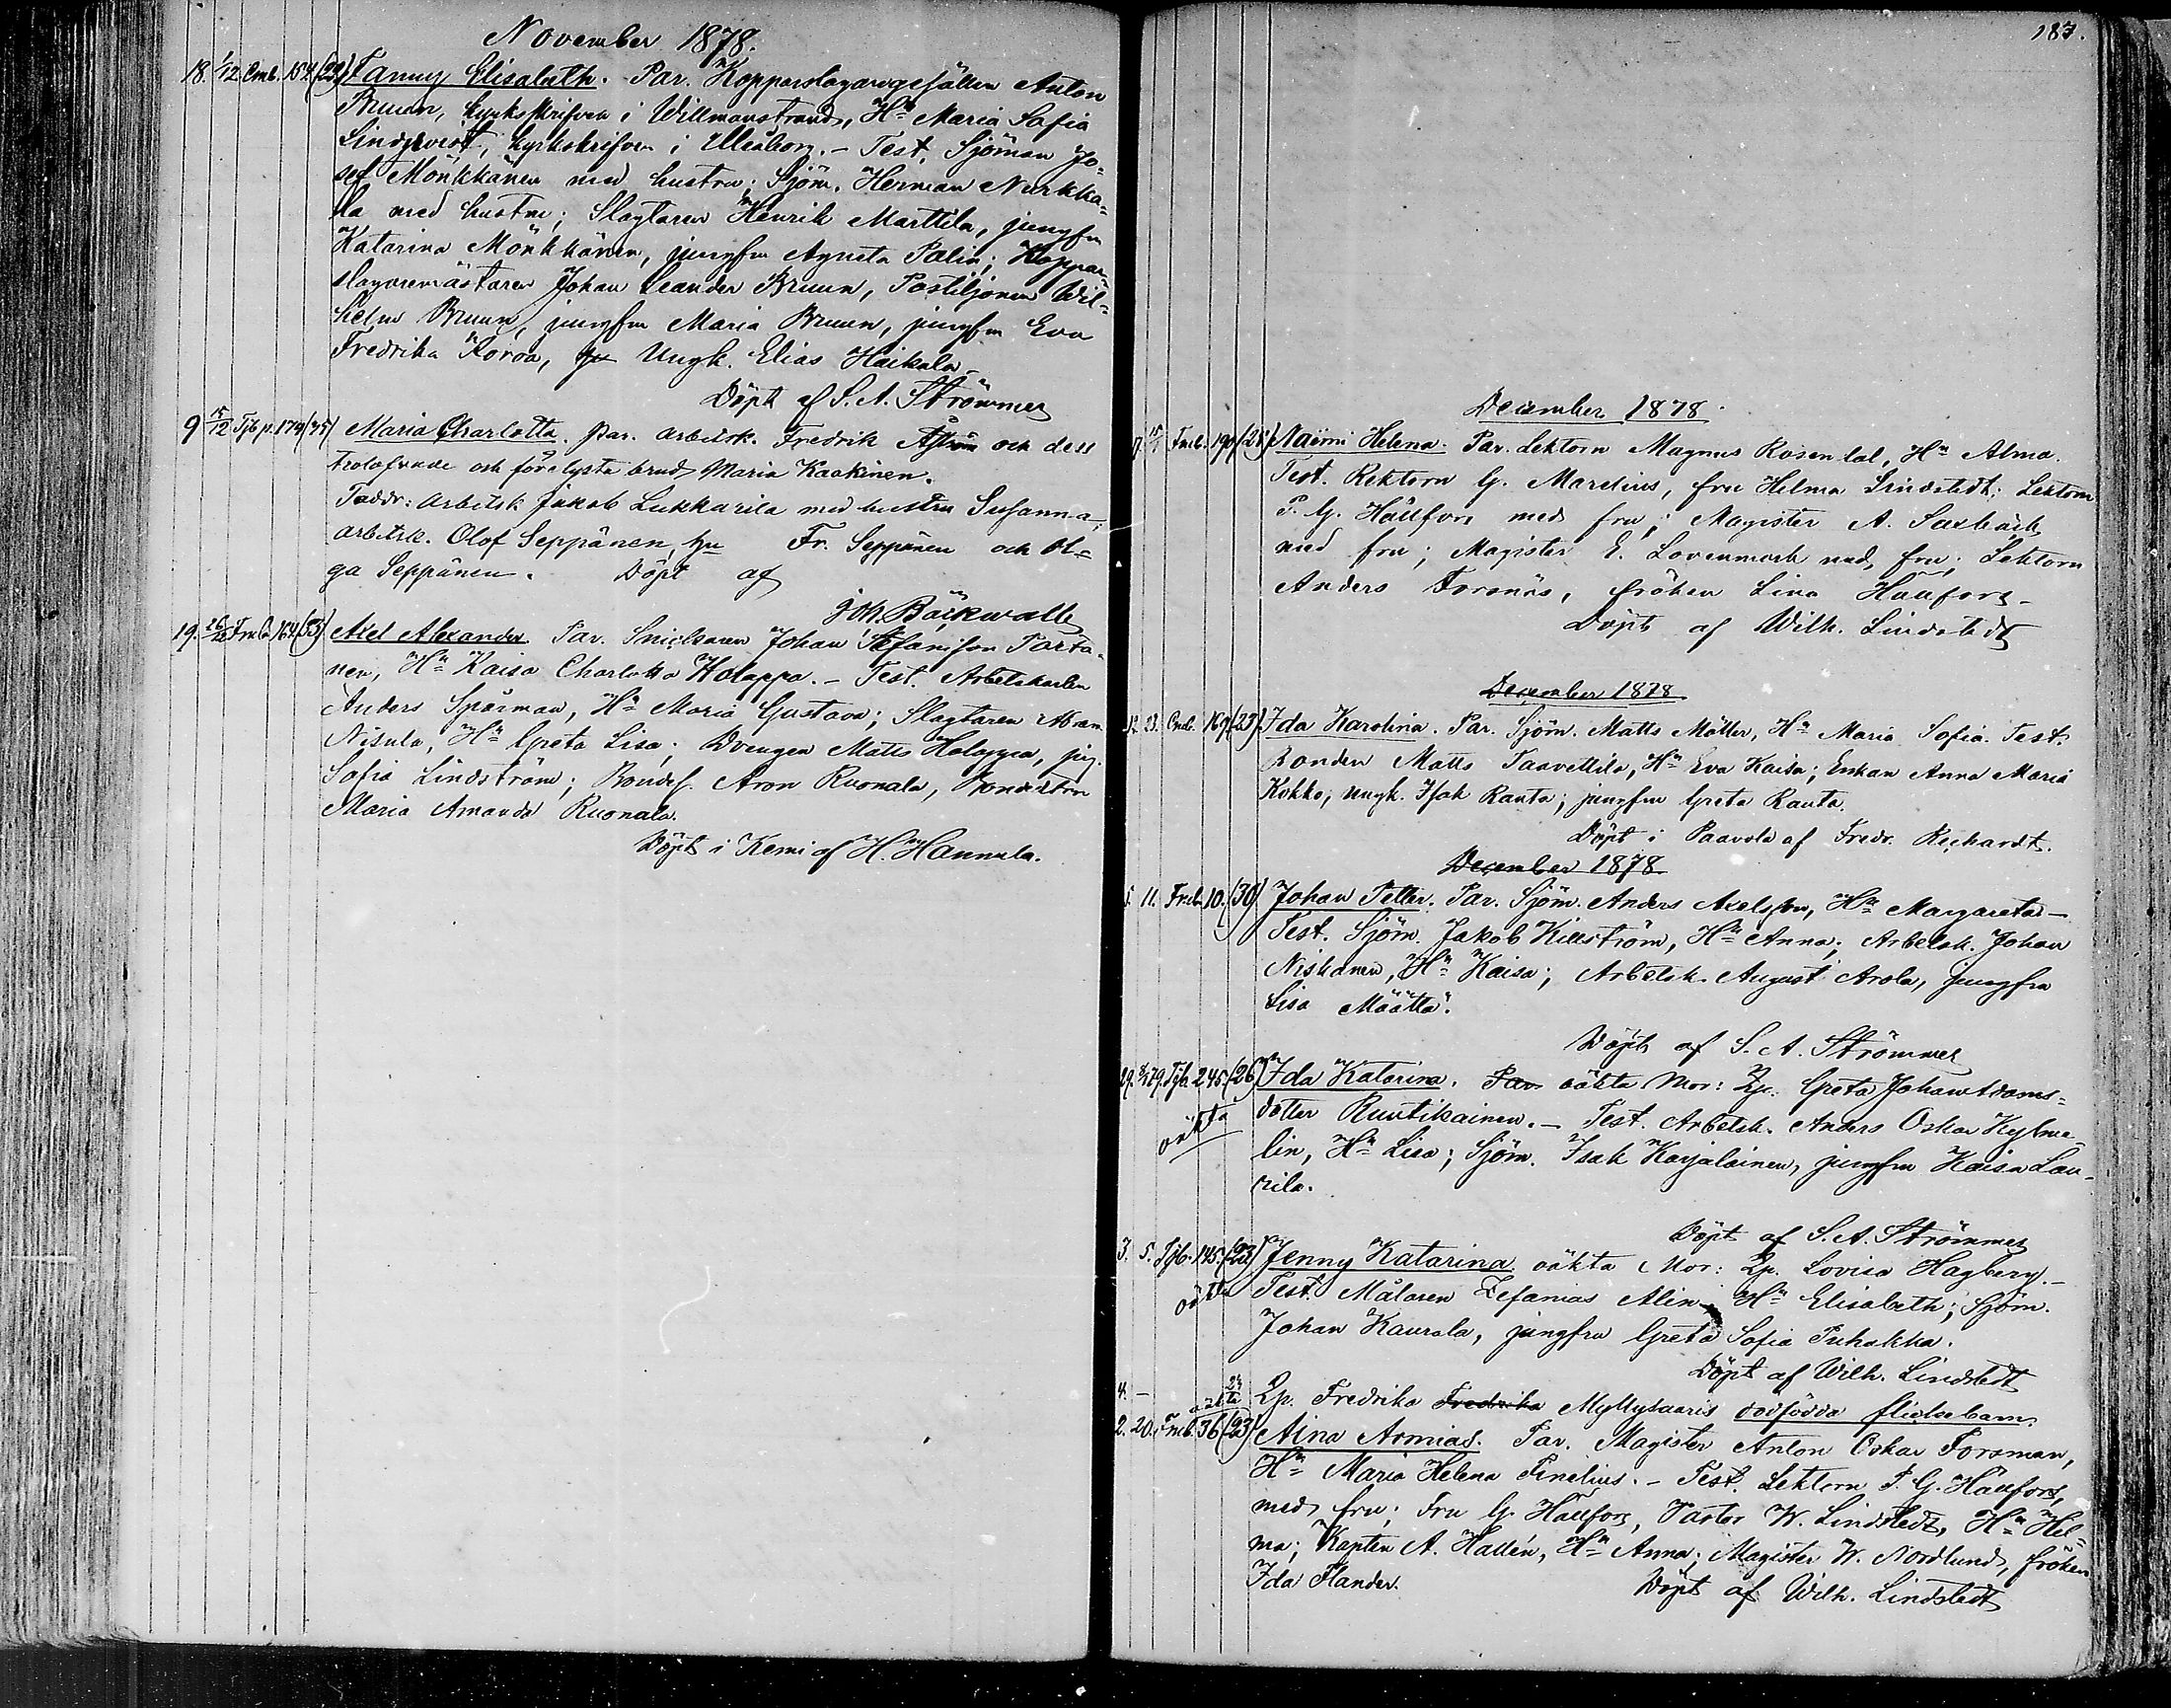 November 1878.
18. 1/12 Fmb. 154 (29) Fanny Elisabeth. Par. Kopparslagaregesällen Anton
Bruun, kyrkskrifven i Willmanstrand, Hn Maria Sofia
Lindqvist, kyrkskrifven i Uleåborg. - Test. Sjöman Jo-
sef Mönkkönen med hustru; Sjöm. Herman Nurkka-
la med hustru; Slagtaren Henrik Marttila, jungfru
Katarina Mönkkönen, jungfru Agneta Palin; Koppar-
slagaremästaren Johan Leander Bruun, Postiljonen Wil-
helm Bruun, jungfru Maria Bruun, jungfru Eva
Fredrika Koroa, Ungk. Elias Haikala.
Döpt af S. A. Strömmer
9 15/12 Tjb p. 174 (35) Maria Charlotta. par. arbetsk. Fredrik Åström och dess
trolofvade och förelysta brud Maria Kaakinen.
Faddr: arbetsk Jakob Lukkarila med hustru Susanna;
arbetsk. Olof Seppänen, hu Fr. Seppänen och Ol-
ga Seppänen. Döpt af
Joh. Bäckwall
19. 26/12 Fmb 164 (33) Axel Alexander Par. Snickaren Johan Stefansson Parta-
nen, Hn Kaisa Charlotta Holappa. - Test. Arbetskarlen
Anders Spårman, Hn Maria Gustava; Slagtaren Abram
Nisula, Hn Greta Lisa; Drengen Matts Holappa, pig.
Sofia Lindström; Bondes. Aron Ruonala, Bondedotter
Maria Amanda Ruonala.
Döpt i Kemi af H. Hannula.
183.
December 1878.
7. 15/1 Fmb. 197 (28) Naëmi Helena. Par. Lektorn Magnus Rosendal, Hn Alma.
Test. Rektorn G. Marelius, fru Hilma Lindstedt; Lektorn
P. G. Hällfors med fru; Magister A. Saxbäck
med fru; Magister E. Lovenmark med fru; Lektorn
Anders Forsnäs, fröken Lina Hällfors -
Döpt af Wilh. Lindstedt
December 1878.
12. 23. Fmb. 169 (27) Ida Karolina. Par. Sjöm. Matts Mötter, Hn Maria Sofia. Test.
Bonden Matts Taavettila, Hn Eva Kaisa; Enkan Anna Maria
Kokko; ungk. Isak Rauta; jungfru Greta Rauta.
Döpt i Paavola af Fredr. Reichardt.
December 1878.
5. 11. Fmb. 10. (30) Johan Petter. Par. Sjöm. Anders Axelsson, Hn Margareta -
Test. Sjöm. Jakob Killström, Hn Anna; Arbetsk. Johan
Niskanen, Hn Kaisa; Arbetsk. August Arola, jungfru
Lisa Määttä.
Döpt af S. A. Strömmer
29. 8/1 79. Tjb. 245. (26) Ida Katarina. Par oäkta Mor: Qp. Greta Johan Adams-
oäkta dotter Ruutikainen. - Test. Arbetsk. Anders Oskar Kylme-
lin, Hn Lisa; Sjöm. Isak Karjalainen, jungfru Kaisa Lau-
rila.
Döpt af S. A. Strömmer
3. 5. Tjb. 145. (23) Jenny Katarina oäkta Mor: Qp. Lovisa Hagberg. -
oäkta Test. Målaren Zefanias Alin, Hn Elisabeth; Sjöm.
Johan Kaurala, jungfru Greta Sofia Puhakka.
Döpt af Wilh. Lindstedt
4. - oäkta 24 Qp. Fredrika Fredrika Myllysaaris dödfödda flickebarn.
2. 20. Fmb. 36 (23) Aina Armias. Par. Magister Anton Oskar Forsman,
Hn Maria Helena Pinelius. - Test. Lektorn P. G. Hällfors,
med fru; Fru G. Hällfors, Pastor W. Lindstedt, Hn Hil-
ma; Kapten A. Hallén, Hn Anna; Magister W. Nordlund, fröken
Ida Flander. Döpt af Wilh. Lindstedt